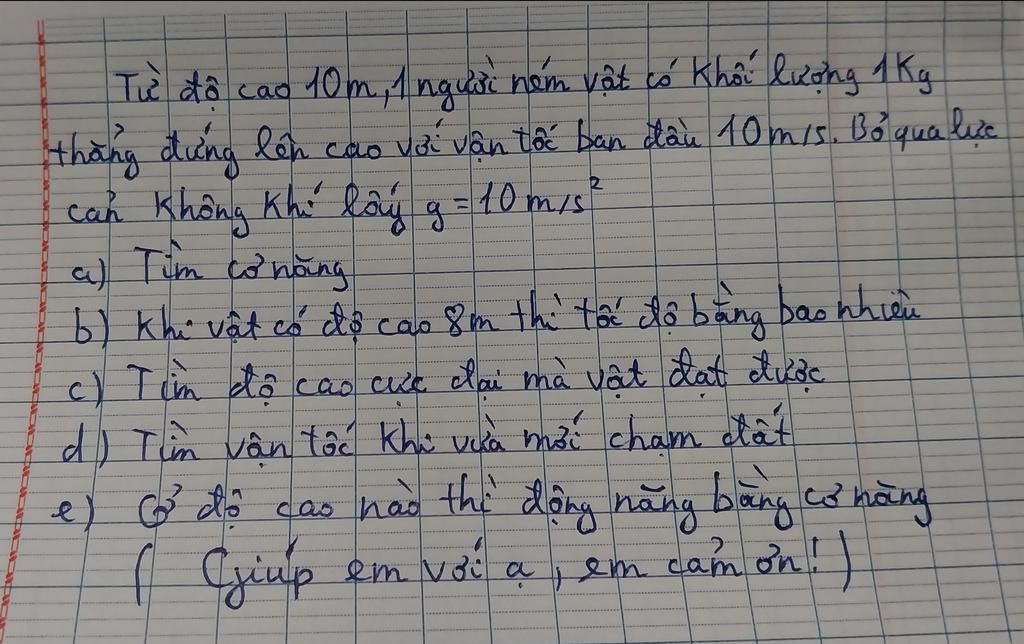 Từ độ cao 10m, 1 người ném vật có khối lượng 1Kg
thẳng đứng lên cao với vận tốc ban đầu 10m/s. Bỏ qua lực
cản không khí lấy g = 10 m/s²
a) Tìm cơ năng
b) Khi vật có độ cao 8m thì tốc độ bằng bao nhiêu
c) Tìm độ cao cực đại mà vật đạt được
d) Tìm vận tốc khi vừa mới chạm đất
e) Ở độ cao nào thì động năng bằng cơ năng
( Giúp em với ạ, em cảm ơn! )